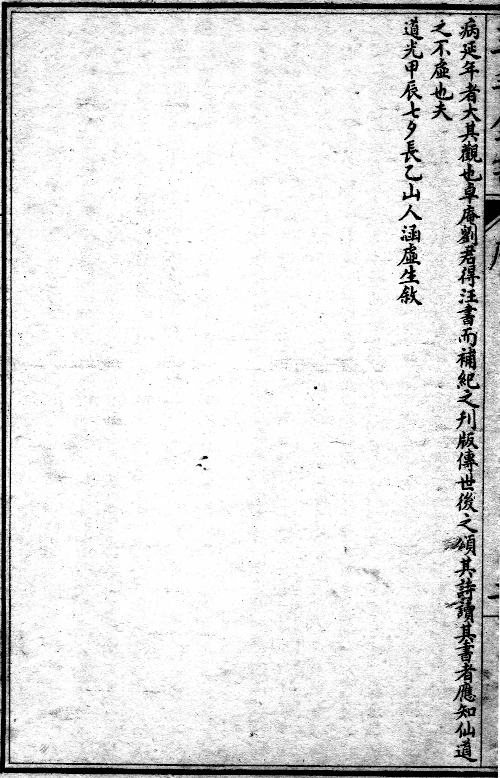 病延年者大其觀也卓庵劉君得汪書而補紀之刋版傳世後之頌其詩讀其書者應知仙道
之不虛也夫
道光甲辰七夕長乙山人涵虛生敘